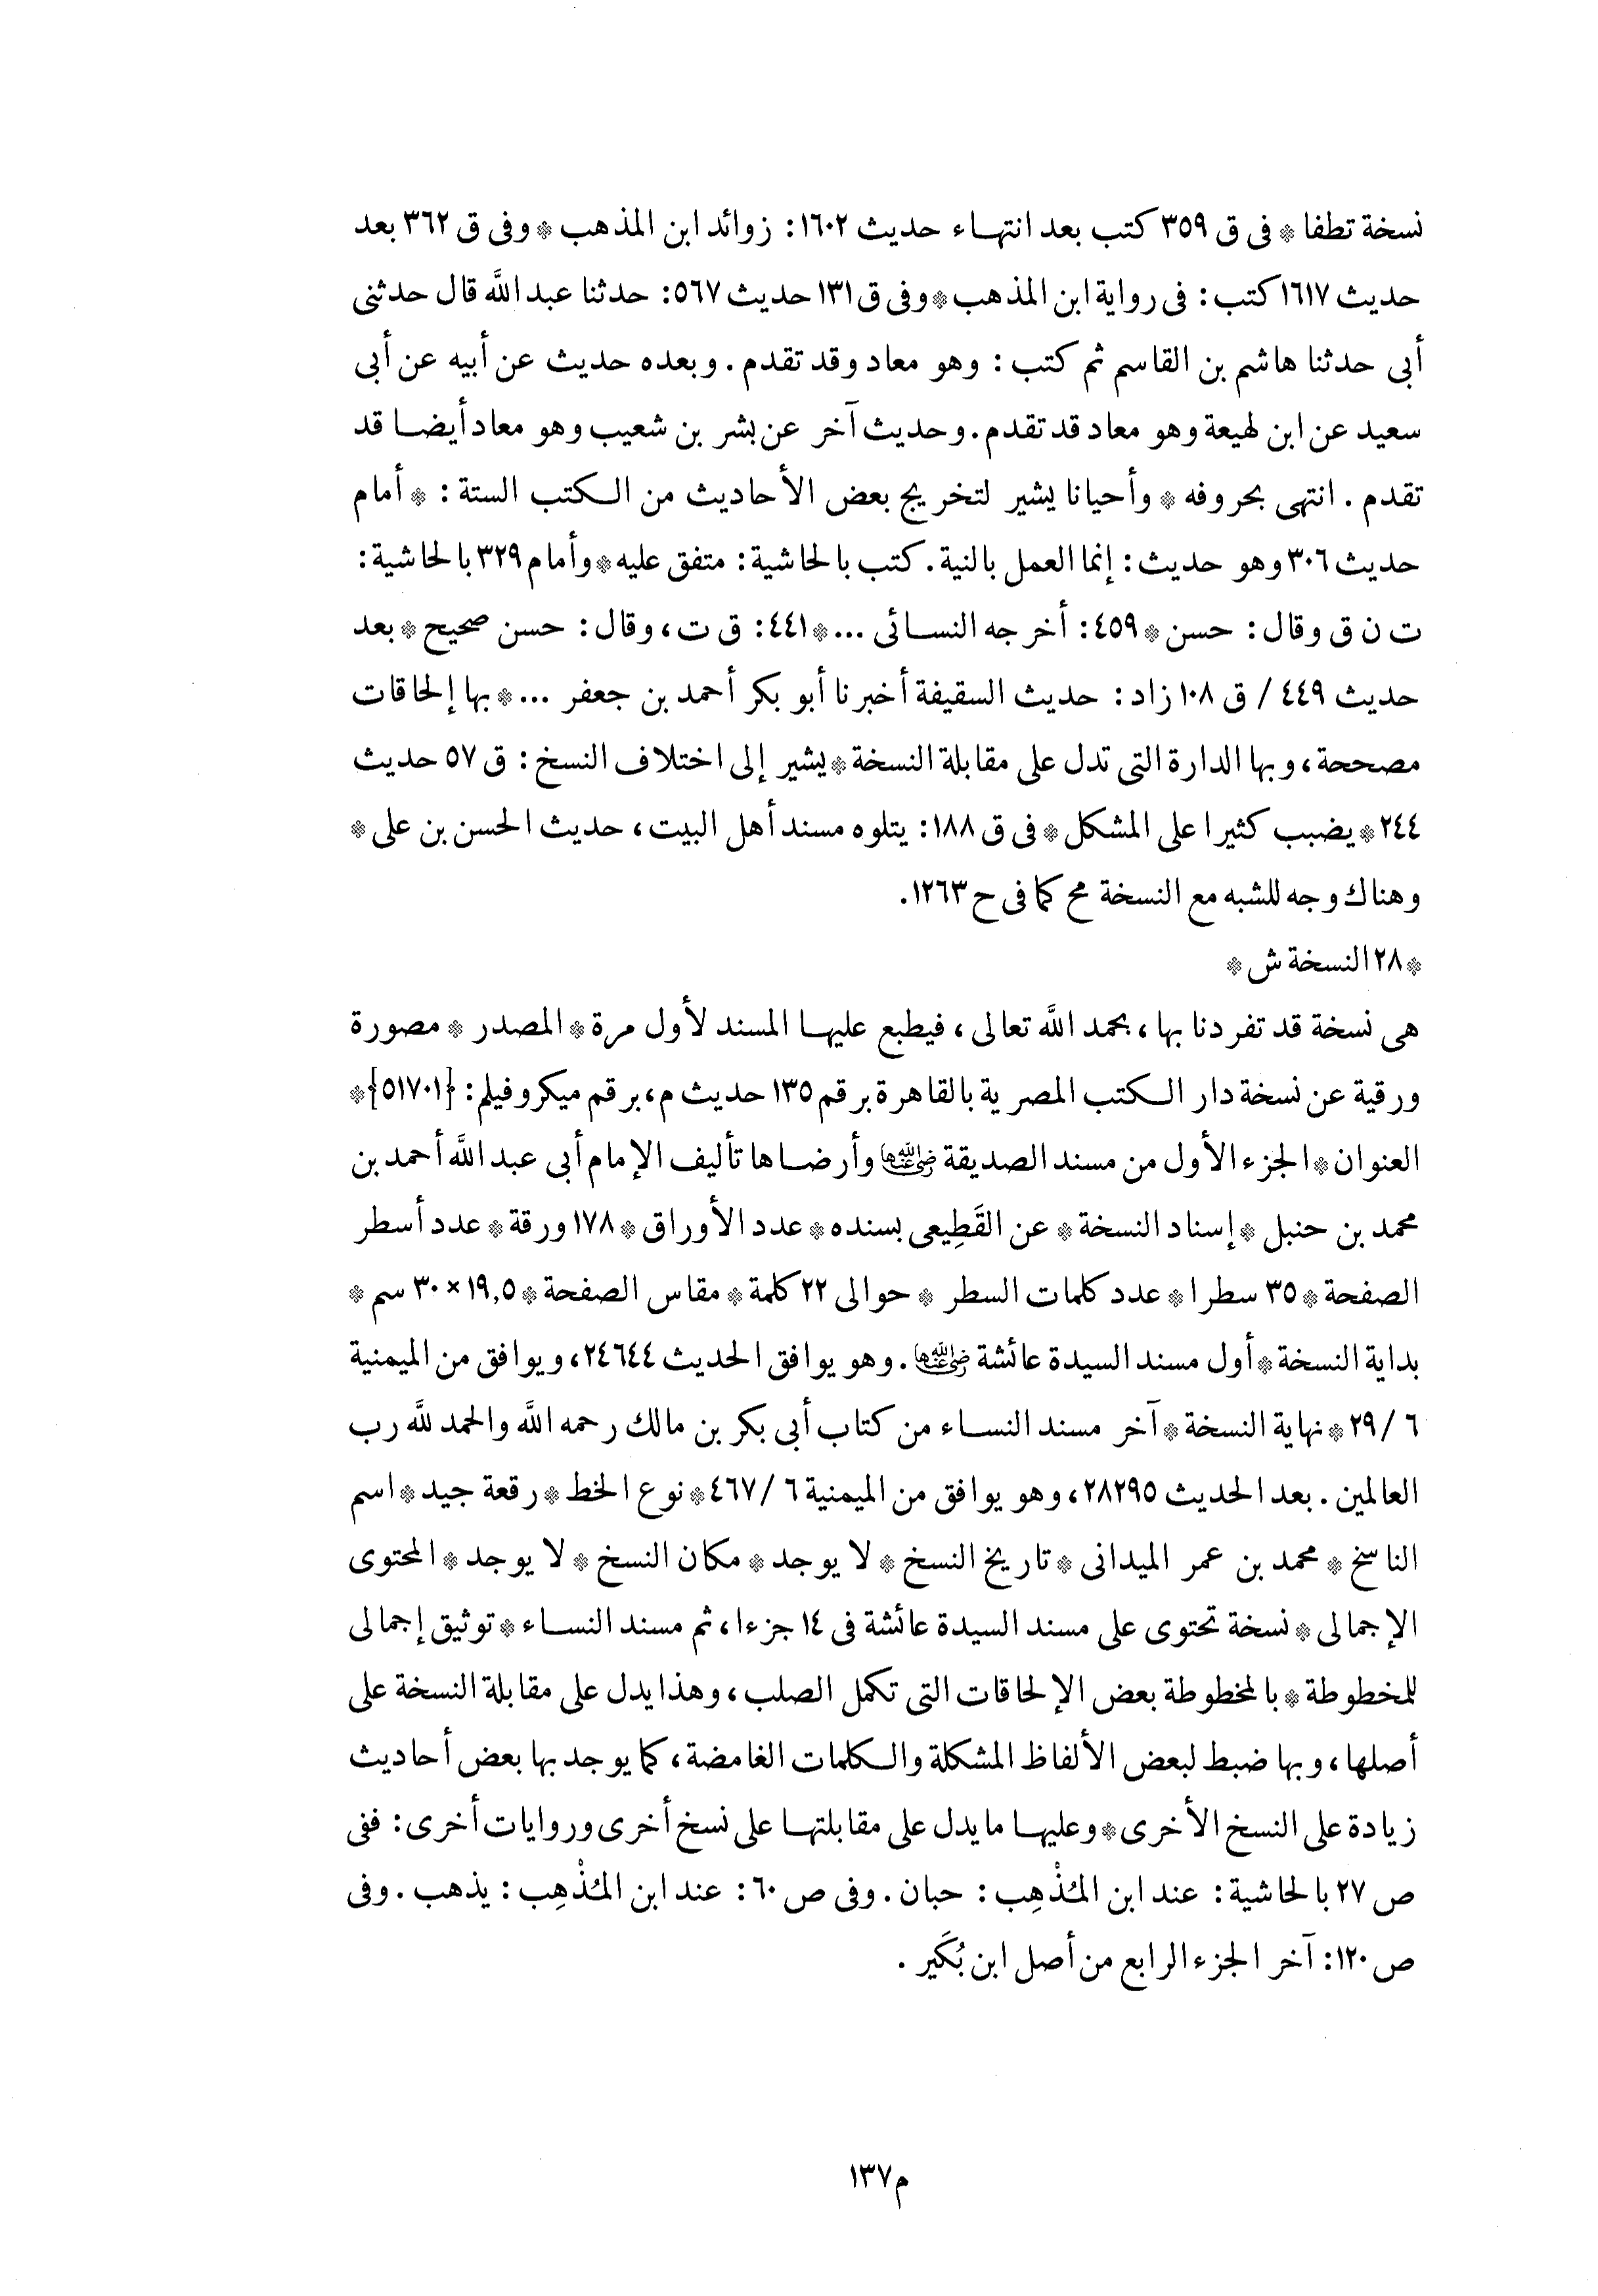 نسخة تطفا * فى ق ٣٥٩ كتب بعد انتهاء حديث ١٦٠٢: زوائد ابن المذهب * وفى ق ٣٦٢ بعد
حديث ١٦١٧ كتب: فى رواية ابن المذهب * وفى ق ١٣١ حديث ٥٦٧: حدثنا عبد اللَّه قال حدثنى
أبى حدثنا هاشم بن القاسم ثم كتب: وهو معاد وقد تقدم. وبعده حديث عن أبيه عن أبى
سعيد عن ابن لهيعة وهو معاد قد تقدم. وحديث آخر عن بشر بن شعيب وهو معاد أيضا قد
تقدم. انتهى بحروفه * وأحيانا يشير لتخريج بعض الأحاديث من الكتب الستة: * أمام
حديث ٣٠٦ وهو حديث: إنما العمل بالنية. كتب بالحاشية: متفق عليه * وأمام ٣٢٩ بالحاشية:
ت ن ق وقال: حسن * ٤٥٩: أخرجه النسائى ... * ٤٤١: ق ت، وقال: حسن صحيح * بعد
حديث ٤٤٩ / ق ١٠٨ زاد: حديث السقيفة أخبرنا أبو بكر أحمد بن جعفر ... * بها إلحاقات
مصححة، وبها الدارة التى تدل على مقابلة النسخة * يشير إلى اختلاف النسخ: ق ٥٧ حديث
٢٤٤ * يضبب كثيرا على المشكل * فى ق ١٨٨: يتلوه مسند أهل البيت، حديث الحسن بن على *
وهناك وجه للشبه مع النسخة مح كما فى ح ١٢٦٣.
* ٢٨ النسخة ش *
هى نسخة قد تفردنا بها، بحمد اللَّه تعالى، فيطبع عليها المسند لأول مرة * المصدر * مصورة
ورقية عن نسخة دار الكتب المصرية بالقاهرة برقم ١٣٥ حديث م، برقم ميكروفيلم: {٥١٧٠١} *
العنوان * الجزء الأول من مسند الصديقة رضي الله عنها وأرضاها تأليف الإمام أبى عبد اللَّه أحمد بن
محمد بن حنبل * إسناد النسخة * عن القَطِيعى بسنده * عدد الأوراق * ١٧٨ ورقة * عدد أسطر
الصفحة * ٣٥ سطرا * عدد كلمات السطر * حوالى ٢٢ كلمة * مقاس الصفحة * ١٩,٥ × ٣٠ سم *
بداية النسخة * أول مسند السيدة عائشة رضي الله عنها. وهو يوافق الحديث ٢٤٦٤٤، ويوافق من الميمنية
٦ / ٢٩ * نهاية النسخة * آخر مسند النساء من كتاب أبى بكر بن مالك رحمه اللَّه والحمد للَّه رب
العالمين. بعد الحديث ٢٨٢٩٥، وهو يوافق من الميمنية ٦ / ٤٦٧ * نوع الخط * رقعة جيد * اسم
الناسخ * محمد بن عمر الميدانى * تاريخ النسخ * لا يوجد * مكان النسخ * لا يوجد * المحتوى
الإجمالى * نسخة تحتوى على مسند السيدة عائشة فى ١٤ جزءا، ثم مسند النساء * توثيق إجمالى
للمخطوطة * بالمخطوطة بعض الإلحاقات التى تكمل الصلب، وهذا يدل على مقابلة النسخة على
أصلها، وبها ضبط لبعض الألفاظ المشكلة والكلمات الغامضة، كما يوجد بها بعض أحاديث
زيادة على النسخ الأخرى * وعليها ما يدل على مقابلتها على نسخ أخرى وروايات أخرى: ففى
ص ٢٧ بالحاشية: عند ابن المُذْهِب: حبان. وفى ص ٦٠: عند ابن المُذْهِب: يذهب. وفى
ص ١٢٠: آخر الجزء الرابع من أصل ابن بُكَير.
م ١٣٧